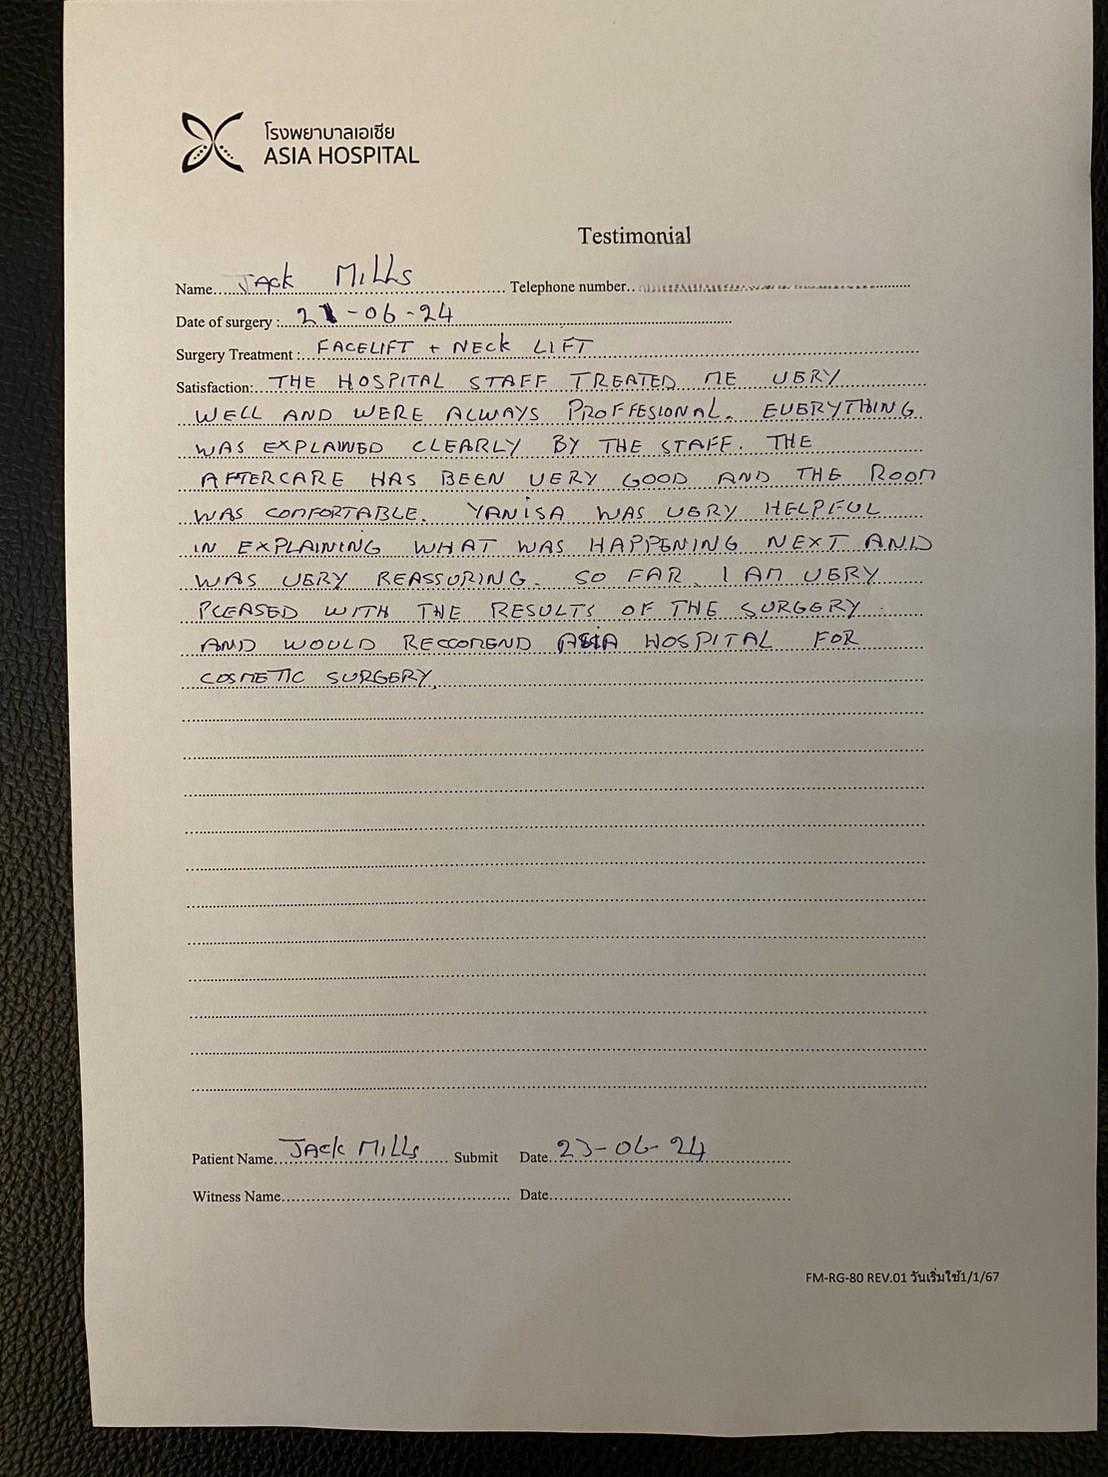 โรงพยาบาลเอเชีย
ASIA HOSPITAL
Testimonial
Name.....Jack Mills..... Telephone number.....
Date of surgery :.....21-06-24.....
Surgery Treatment :.....FACELIFT + NECK LIFT.....
Satisfaction:...THE HOSPITAL STAFF TREATED ME VERY
WELL AND WERE ALWAYS PROFFESIONAL. EVERYTHING
WAS EXPLAINED CLEARLY BY THE STAFF. THE
AFTERCARE HAS BEEN VERY GOOD AND THE ROOM
WAS COMFORTABLE. YANISA WAS VERY HELPFUL
IN EXPLAINING WHAT WAS HAPPENING NEXT AND
WAS VERY REASSURING. SO FAR I AM VERY
PLEASED WITH THE RESULTS OF THE SURGERY
AND WOULD RECCOMEND ASIA HOSPITAL FOR
COSMETIC SURGERY.
Patient Name...Jack Mills..... Submit Date..23-06-24.....
Witness Name..... Date.....
FM-RG-80 REV.01 วันเริ่มใช้1/1/67